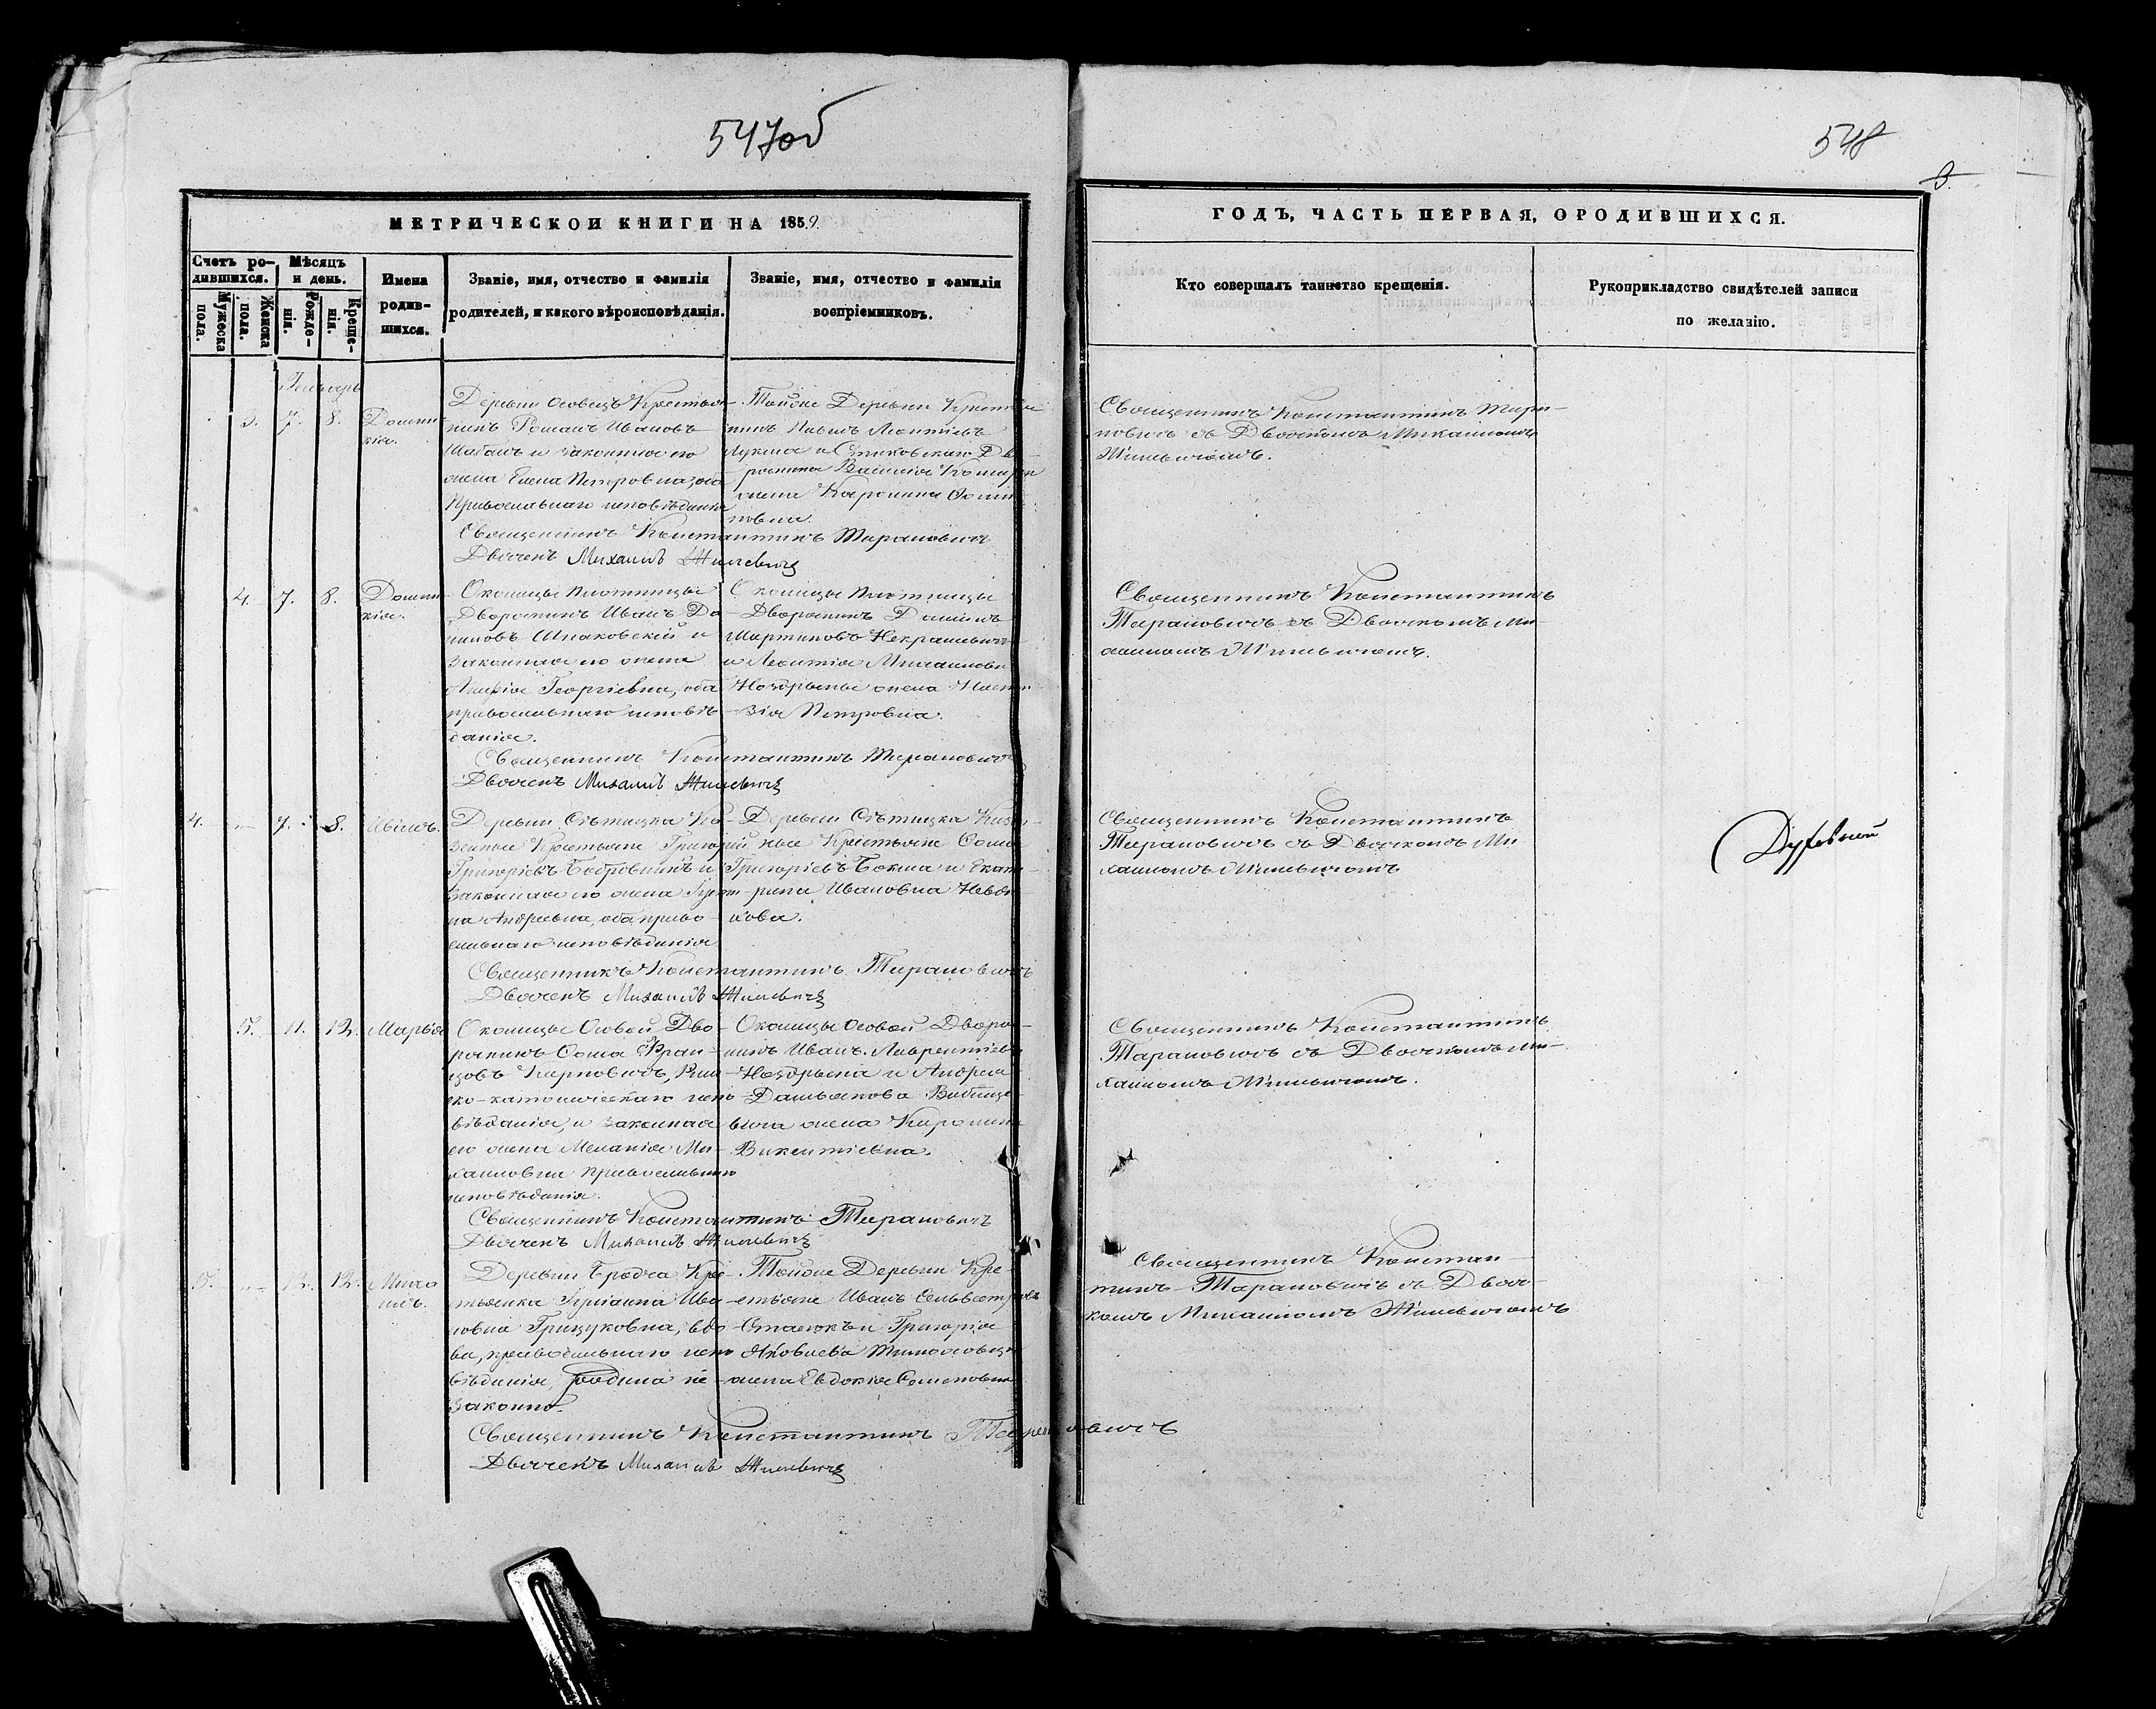 547об
548
3.
МЕТРИЧЕСКОЙ КНИГИ НА 1859.
ГОДЪ, ЧАСТЬ ПЕРВАЯ, О РОДИВШИХСЯ.
Счетъ ро-
дившихся.
Мѣсяцъ
и день.
Мужеска
пола.
Женска
пола.
Рожде-
нія.
Креще-
нія.
Имена
родив-
шихся.
Званіе, имя, отчество и фамилія
родителей, и какого вѣроисповѣданія.
Званіе, имя, отчество и фамилія
воспріемниковъ.
Кто совершалъ таинство крещенія.
Рукоприкладство свидѣтелей записи
по желанію.
Генварь
3. 7. 8.
Домни-
кія.
Деревни Особецъ Крестья-
нинъ Романъ Ивановъ
и законная его
жена Елена Петровна, оба
Православнаго исповѣданія
Тойже Деревни Крестья-
нинъ Леонтіевъ
жена
новна.
Священникъ Константинъ Тарановичъ
Дьячекъ Михаилъ Жилевичъ
Священникъ Константинъ Тара-
новичъ съ Дьячкомъ Михаиломъ
Жилевичемъ.
4. 7. 8.
Домни-
кія.
Околицы Плотницы
Дворянинъ Иванъ Да-
ниловъ Шпаковскій и
законная его жена
Георгіевна, оба
православнаго исповѣ-
данія.
Околицы Плотницы
Дворянинъ Даніилъ
Мартиновъ Некрашевичъ
и Леонтія Михаилова
Ноздрына жена
Петровна.
Священникъ Константинъ Тарановичъ
Дьячекъ Михаилъ Жилевичъ
Священникъ Константинъ
Тарановичъ съ Дьячкомъ Ми-
хаиломъ Жилевичемъ.
4. 7. 8.
Иванъ.
Деревни Сѣтицка Ка-
зенные Крестьяне Григорій
Григоріевъ Бобровникъ и
законная его жена
на Андреевна, оба право-
славнаго исповѣданія
Деревни Сѣтицка Казен-
ные Крестьяне Сома
Григоріевъ и Екате-
рина Ивановна
кова.
Священникъ Константинъ Тарановичъ
Дьячекъ Михаилъ Жилевичъ
Священникъ Константинъ
Тарановичъ съ Дьячкомъ Ми-
хаиломъ Жилевичемъ
Духовной
5. 11. 12.
Марья
Околицы Особой Дво-
рянинъ Сома Фран-
цовъ Карповичъ, Рим-
ско-католическаго испо-
вѣданія, и законная
его жена Меланія Ми-
хаиловна Православнаго
исповѣданія.
Околицы Особой Дворя-
нинъ Иванъ Лаврентіевъ
Ноздрына и Андрея
Дамьянова
жена Каролина
Викентіевна.
Священникъ Константинъ Тарановичъ
Дьячекъ Михаилъ Жилевичъ
Священникъ Константинъ
Тарановичъ съ Дьячкомъ Ми-
хаиломъ Жилевичемъ.
5. 12. 12.
Миха-
илъ.
Деревни Бродча Кре-
стьянка Іуліанна Ива-
новна Грицуковна, вдо-
ва, православнаго испо-
вѣданія, родила не-
законно.
Тойже Деревни Кре-
стьяне Иванъ Сельвестровъ
и Григорія
Яковлева
жена Евдокія Семеновна
Священникъ Константинъ Тарановичъ
Дьячекъ Михаилъ Жилевичъ
Священникъ Констан-
тинъ Тарановичъ съ Дьяч-
комъ Михаиломъ Жилевичемъ